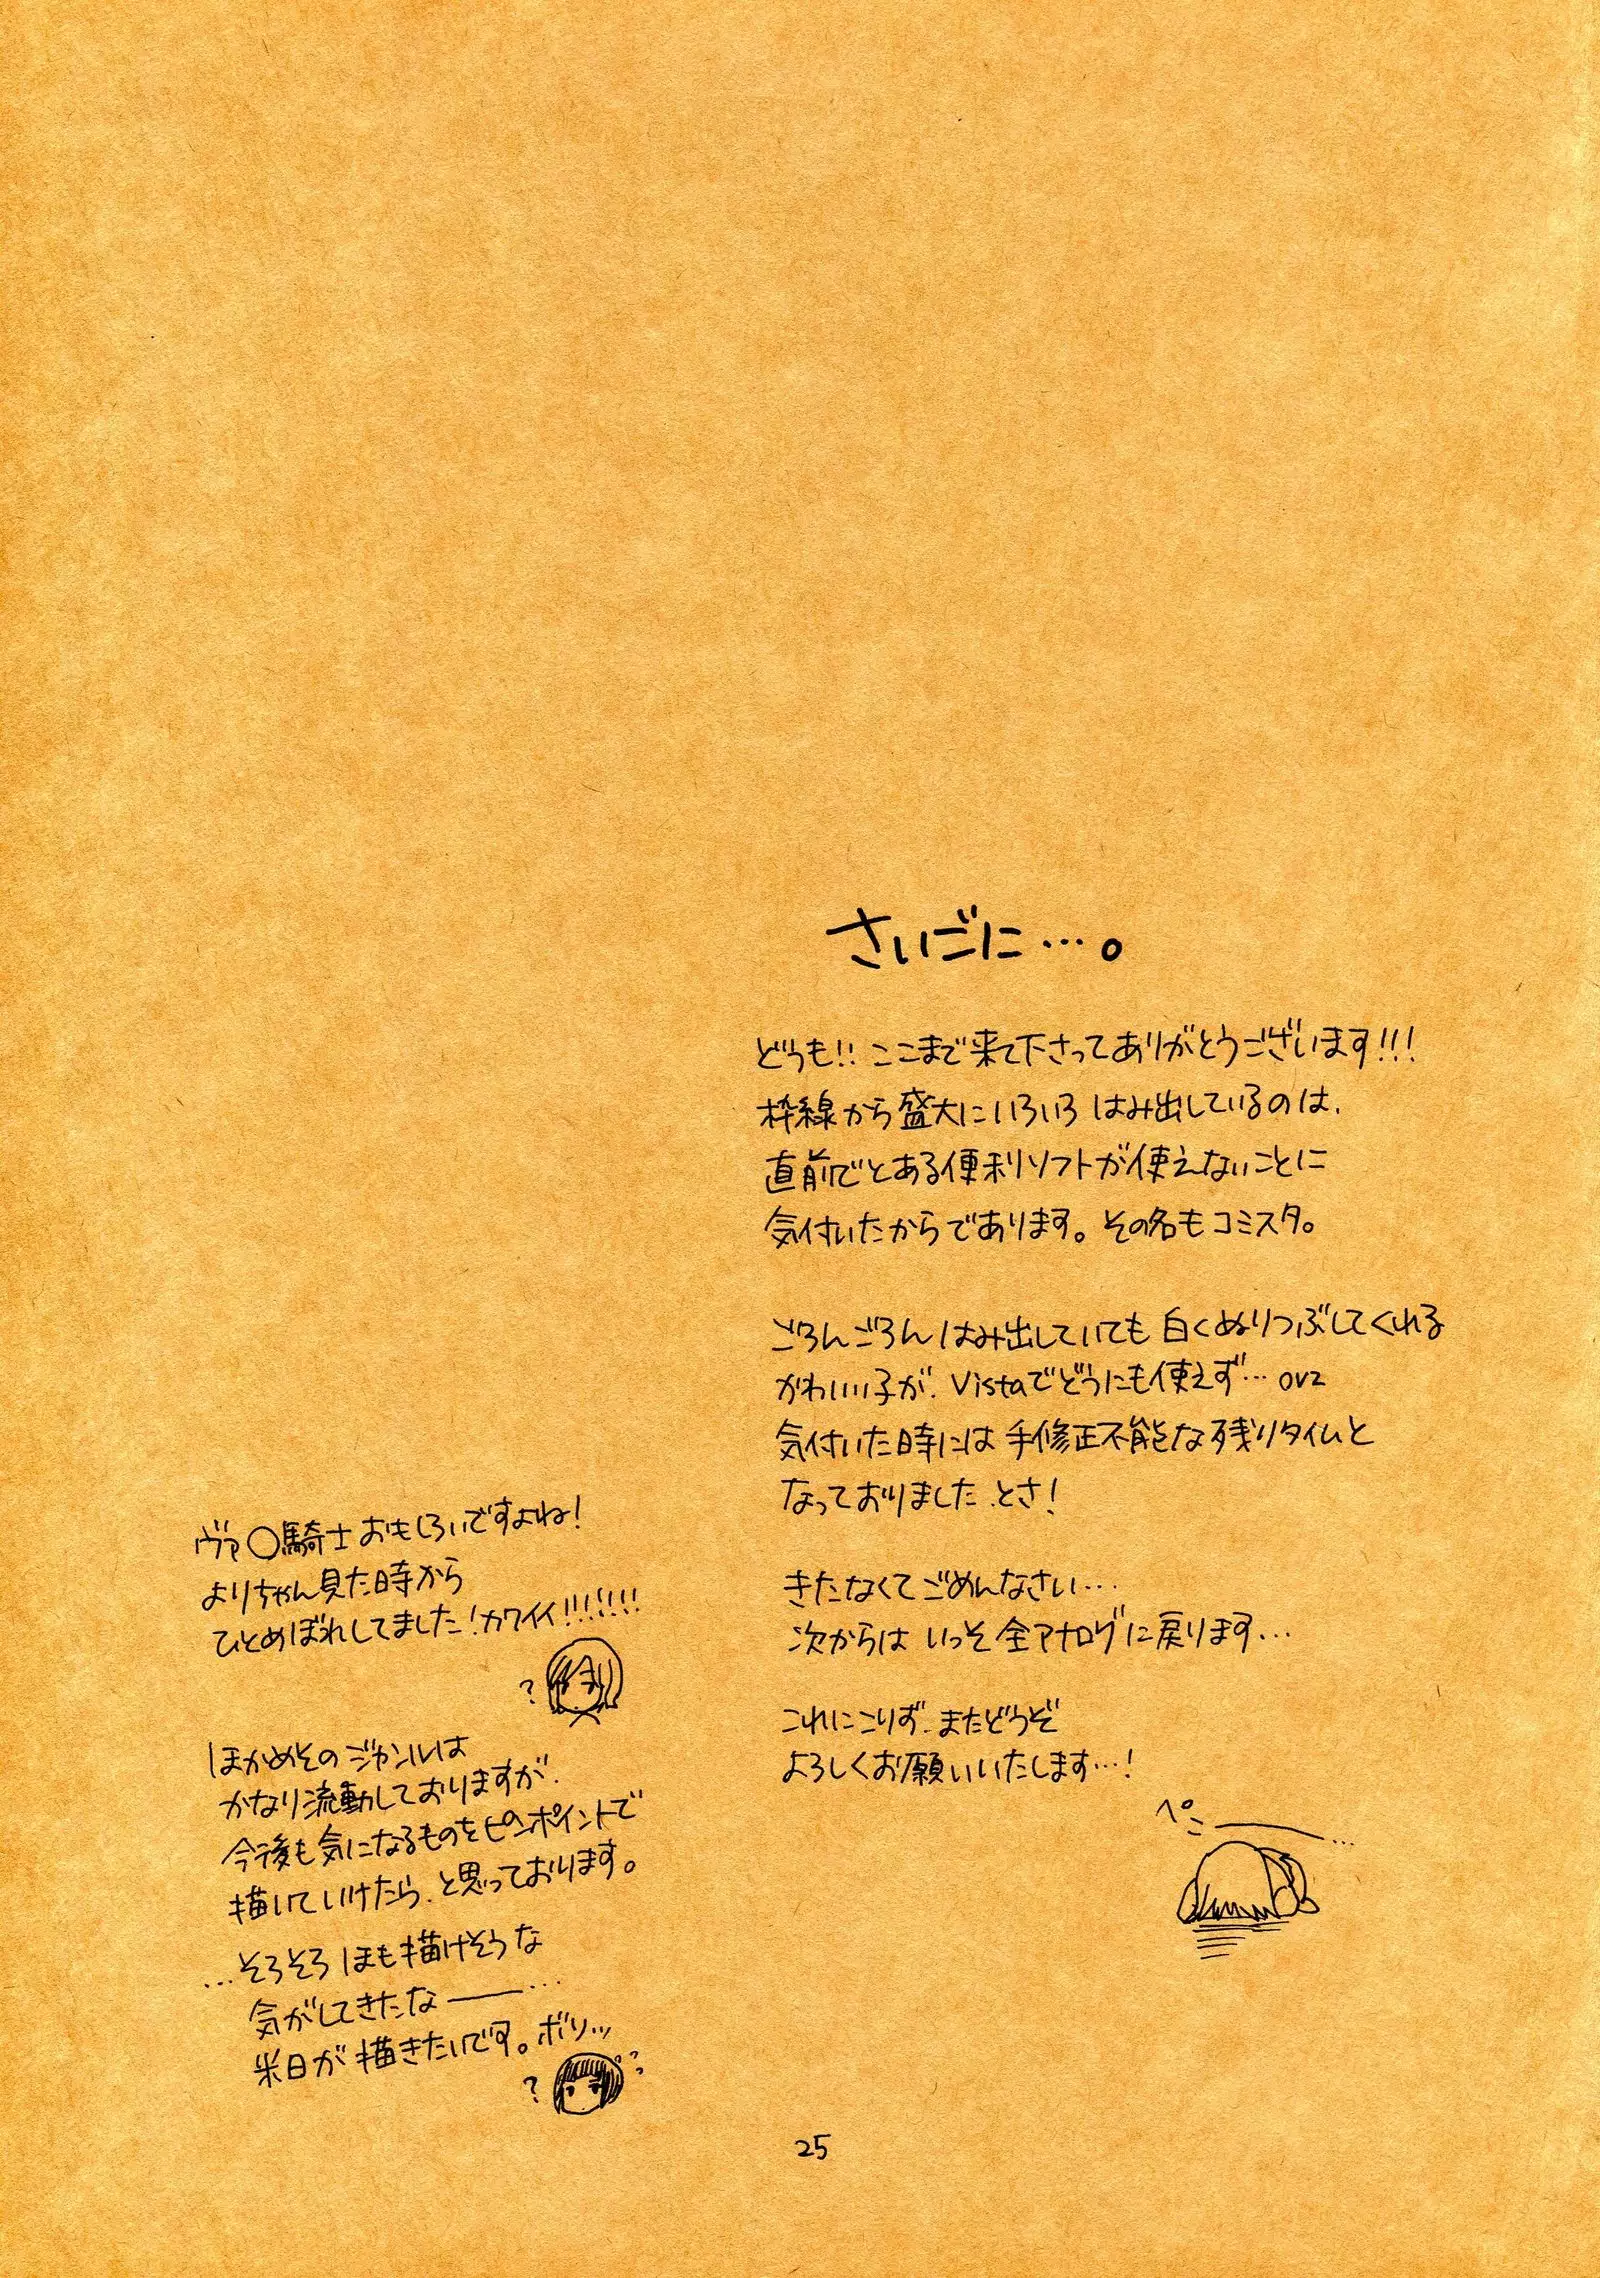 さいごに…。
どうも!! ここまで来て下さってありがとうございます!!!
枠線から盛大にいろいろ はみ出しているのは、
直前でとある便利ソフトが使えないことに
気付いたからであります。その名もコミスタ。
ごろんごろん はみ出していても 白くぬりつぶしてくれる
かわいい子が、Vistaでどうにも使えず…orz
気付いた時には手修正不能な残りタイムと
なっておりました、とさ!
きたなくてごめんなさい…
次からは いっそ全アナログに戻ります…
これにこりず、またどうぞ
よろしくお願いいたします…!
ペこ―…
ヴァ○騎士おもしろいですよね!
よりちゃん見た時から
ひとめぼれしてました!カワイイ!!!!!!!
?
ほかめその ジャンルは
かなり流動しておりますが、
今後も気になるものをピンポイントで
描いていけたら、と思っております。
…そろそろ ほも描けそうな
気がしてきたな――…
米日が描きたいです。ボソッ
? ??
25